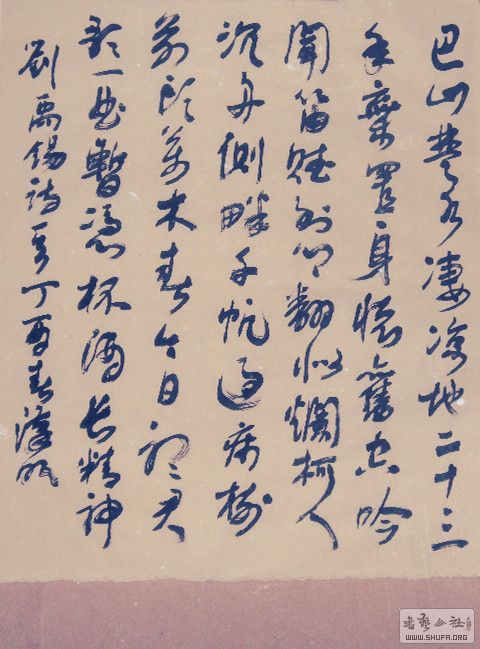 巴山楚水淒涼地二十三
年棄置身懷舊空吟
聞笛賦到鄉翻似爛柯人
沉舟側畔千帆過病樹
前頭萬木春今日聽君
歌一曲暫憑杯酒長精神
劉禹錫詩丁酉春
書藝公社
WWW.SHUFA.ORG